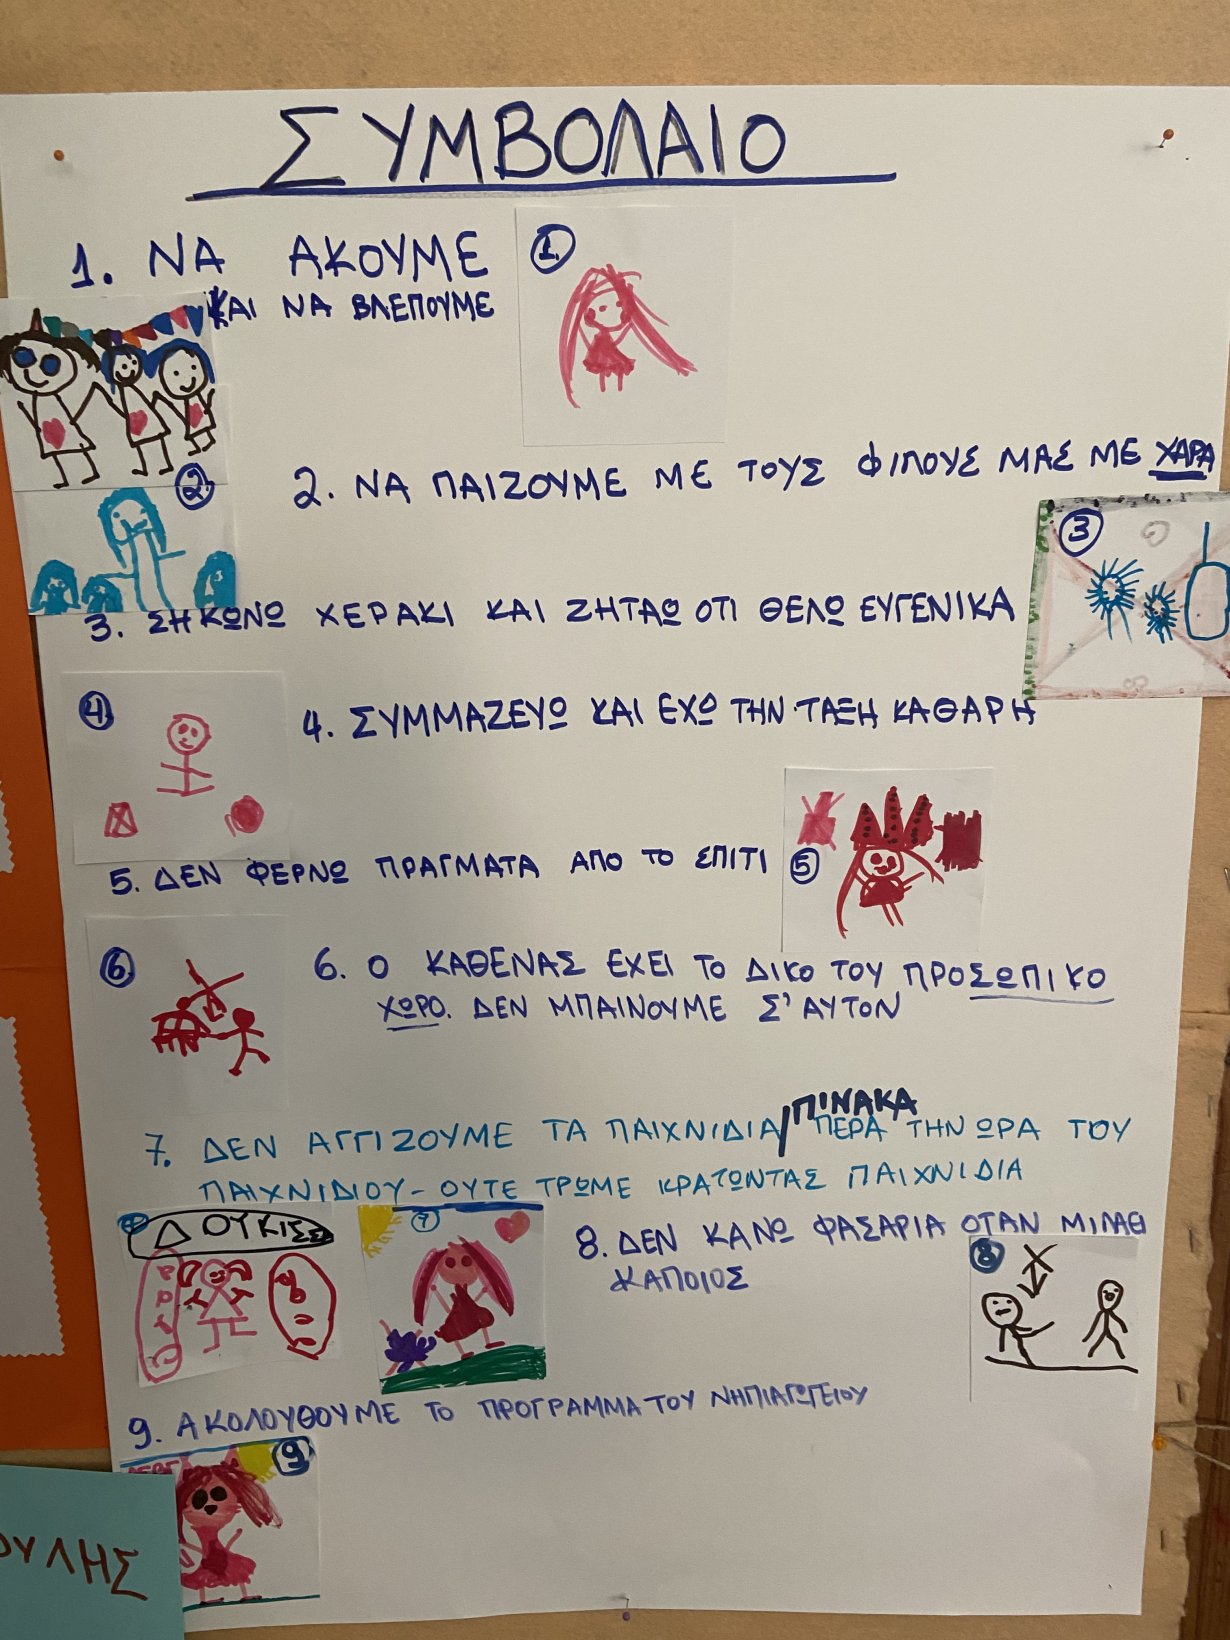 ΣΥΜΒΟΛΑΙΟ
1. ΝΑ ΑΚΟΥΜΕ
ΚΑΙ ΝΑ ΒΛΕΠΟΥΜΕ
1.
2.
2. ΝΑ ΠΑΙΖΟΥΜΕ ΜΕ ΤΟΥΣ ΦΙΛΟΥΣ ΜΑΣ ΜΕ ΧΑΡΑ
3
3. ΣΗΚΩΝΩ ΧΕΡΑΚΙ ΚΑΙ ΖΗΤΑΩ ΟΤΙ ΘΕΛΩ ΕΥΓΕΝΙΚΑ
4.
4. ΣΥΜΜΑΖΕΥΩ ΚΑΙ ΕΧΩ ΤΗΝ ΤΑΞΗ ΚΑΘΑΡΗ
5. ΔΕΝ ΦΕΡΝΩ ΠΡΑΓΜΑΤΑ ΑΠΟ ΤΟ ΣΠΙΤΙ
5
6.
6. Ο ΚΑΘΕΝΑΣ ΕΧΕΙ ΤΟ ΔΙΚΟ ΤΟΥ ΠΡΟΣΩΠΙΚΟ
ΧΩΡΟ. ΔΕΝ ΜΠΑΙΝΟΥΜΕ Σ' ΑΥΤΟΝ
7. ΔΕΝ ΑΓΓΙΖΟΥΜΕ ΤΑ ΠΑΙΧΝΙΔΙΑ/ΠΙΝΑΚΑ ΠΕΡΑ ΤΗΝ ΩΡΑ ΤΟΥ
ΠΑΙΧΝΙΔΙΟΥ - ΟΥΤΕ ΤΡΩΜΕ ΚΡΑΤΩΝΤΑΣ ΠΑΙΧΝΙΔΙΑ
7
8. ΔΕΝ ΚΑΝΩ ΦΑΣΑΡΙΑ ΟΤΑΝ ΜΙΛΑΕΙ
ΚΑΠΟΙΟΣ
8
9. ΑΚΟΛΟΥΘΟΥΜΕ ΤΟ ΠΡΟΓΡΑΜΜΑ ΤΟΥ ΝΗΠΙΑΓΩΓΕΙΟΥ
9
ΟΥΛΗΣ